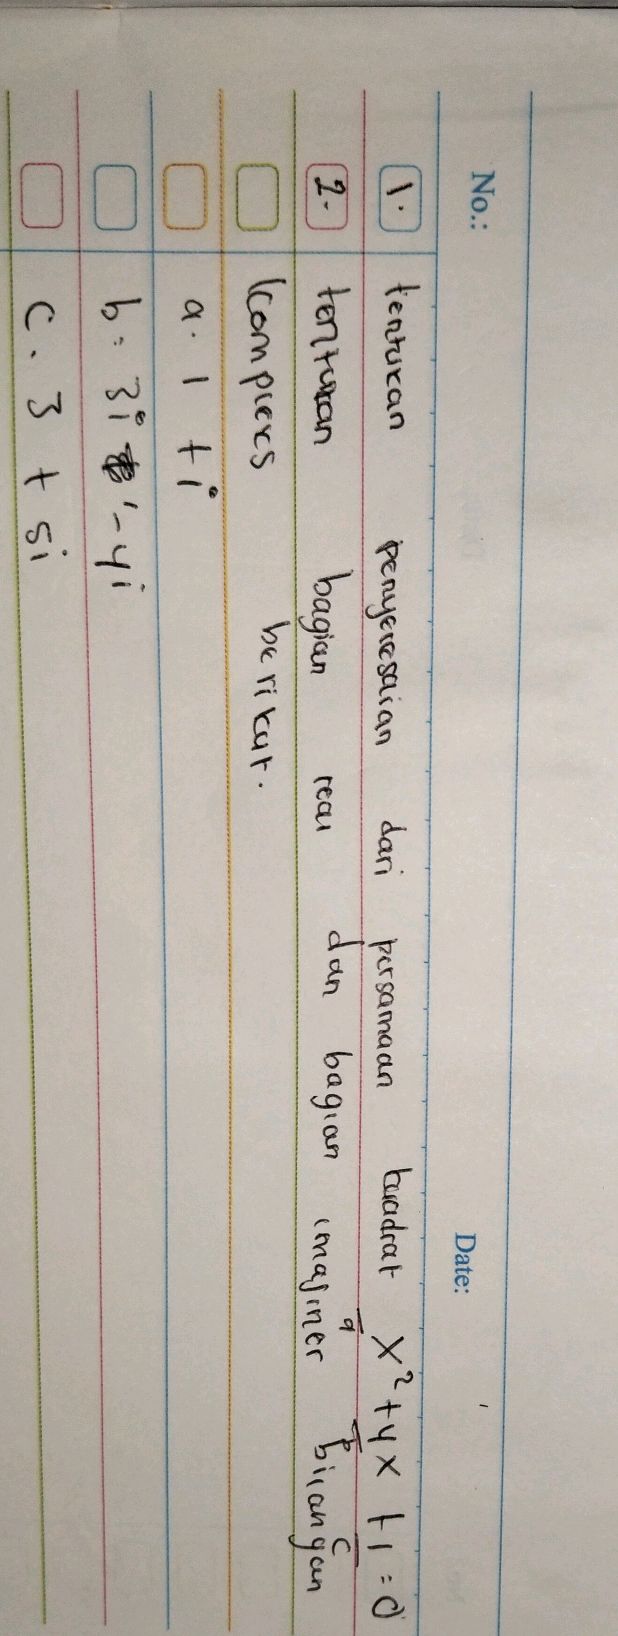 No.: Date:
1. tentukan penyelesaian dari persamaan kuadrat x²+4x +1=0
a b c
2. tentukan bagian real dan bagian imajiner bilangan
kompleks berikut.
a. 1 + i
b. 3i - 4i
c. 3 + 5i